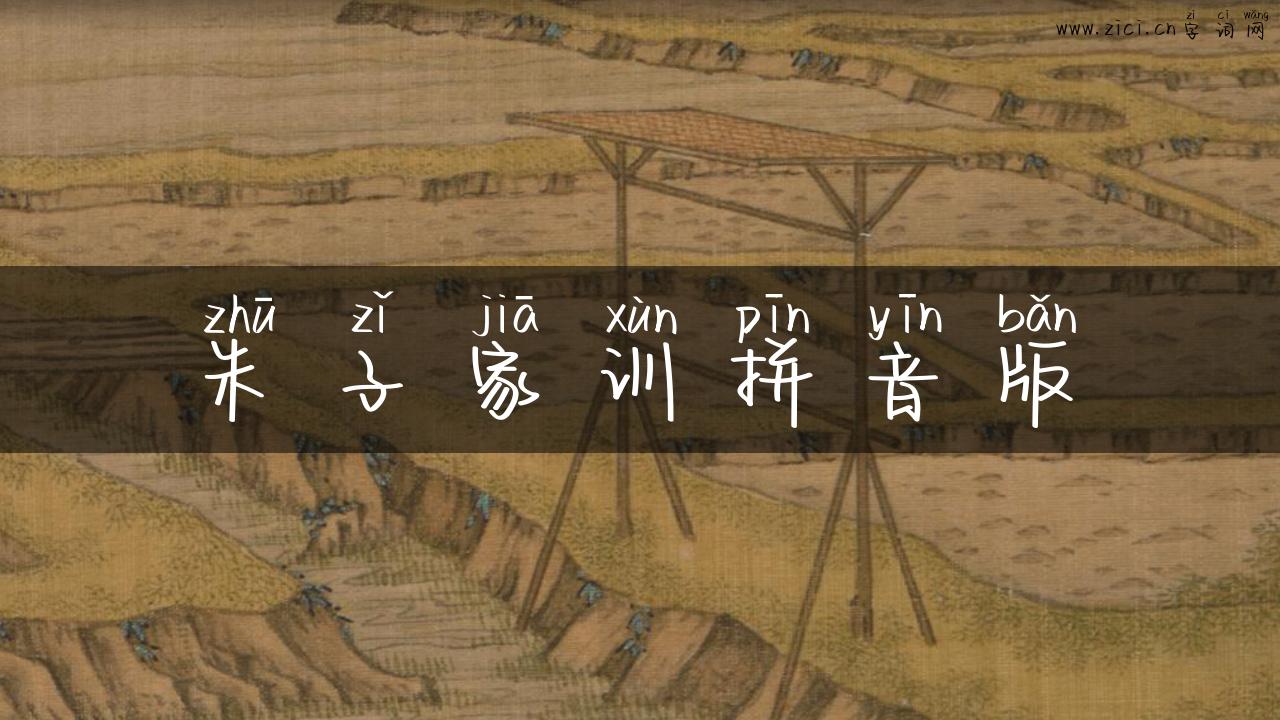 zì cí wǎng
www.zici.cn 字词网
zhū zǐ jiā xùn pīn yīn bǎn
朱子家训拼音版